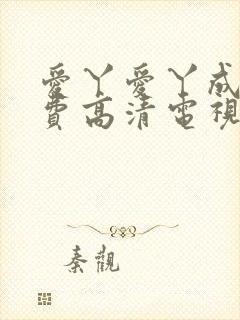 愛丫愛丫成
費高清電視
秦觀